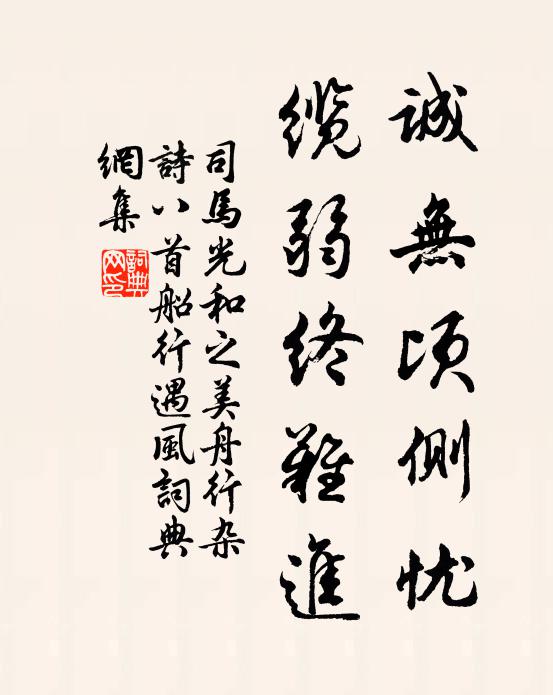 誠無頃側忧
缆弱终難進
司馬光和之美舟行杂
詩八首船行遇風詞典
網集
詞典網印